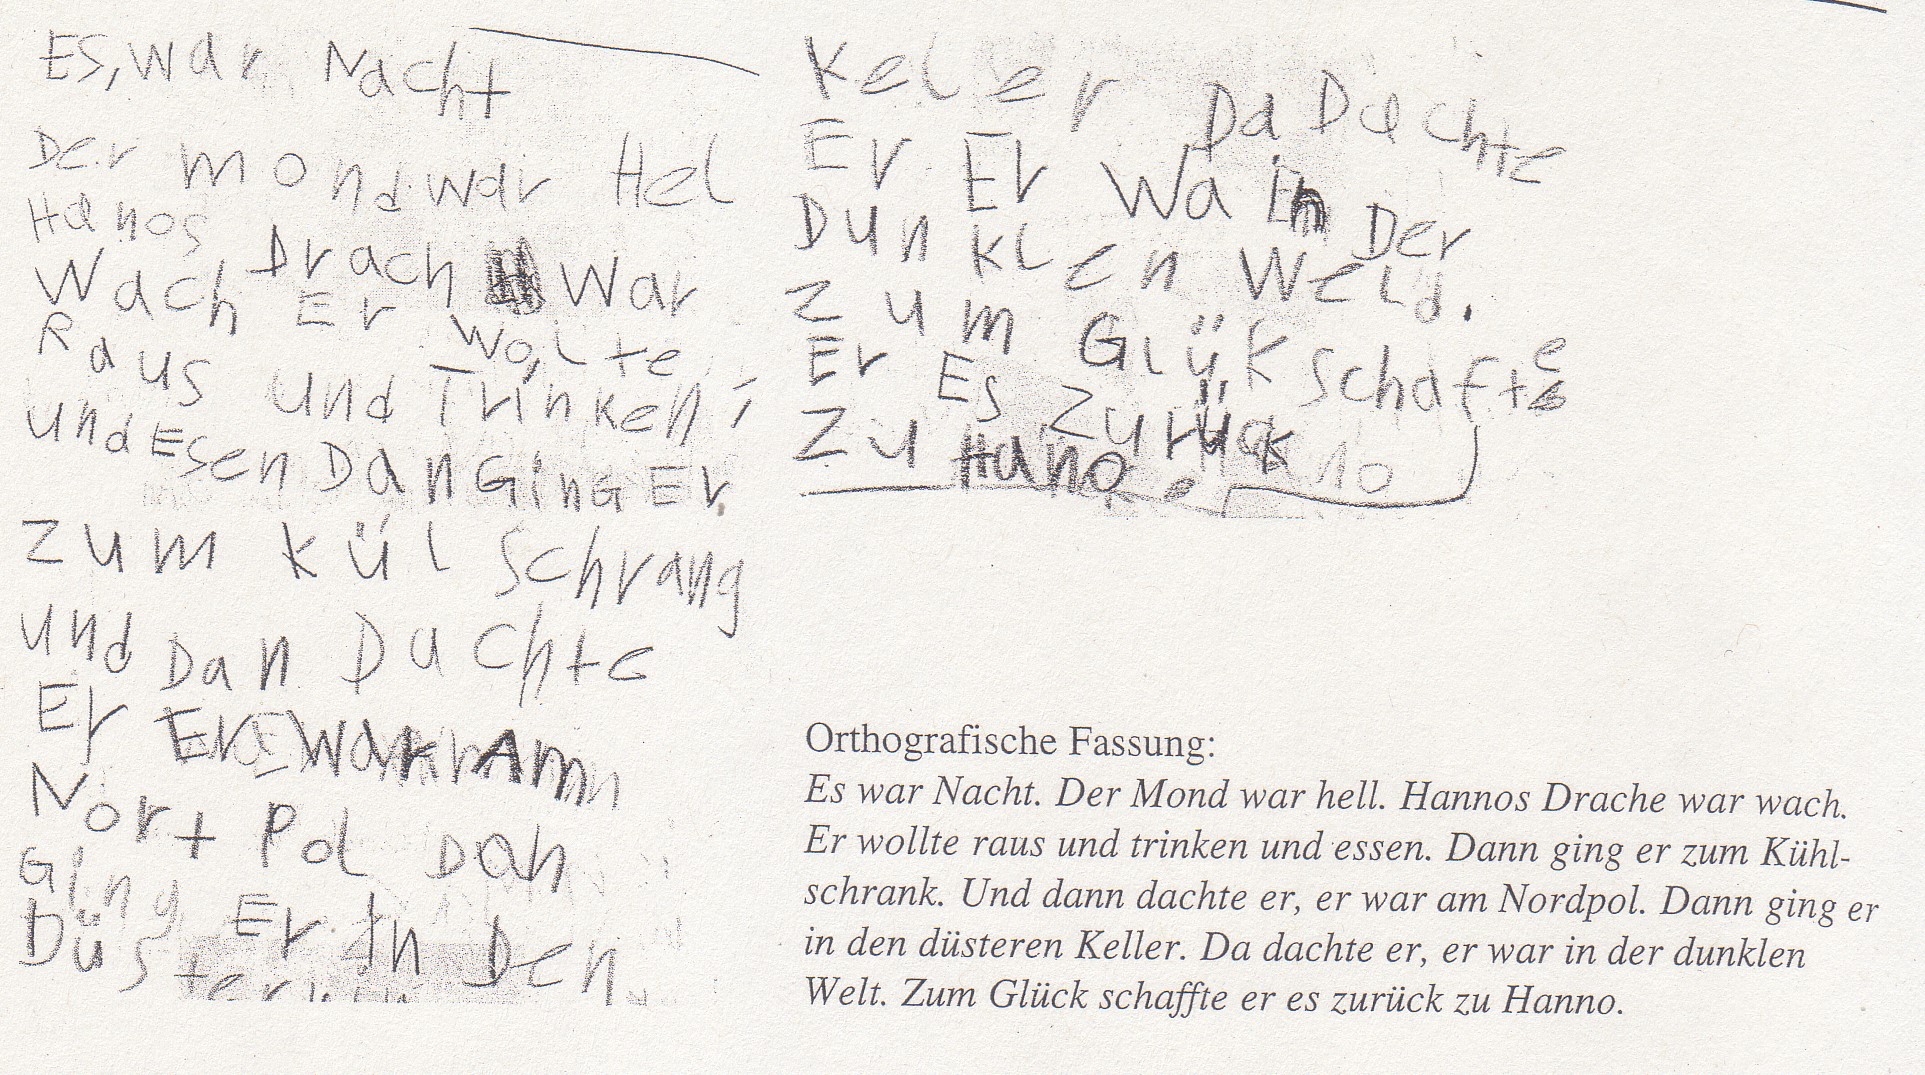 ES, war Nacht
Der mond war Hel
Hanos Drach war
Wach Er wolte
Raus und Trinken,
und Esen Dan GinG Er
zum kül schrang
und Dan Dachte
Er Er war Am
Nort Pol Dan
Ging Er In Den
Düster
Keler Da Dachte
Er Er Wa in Der
Dunklen Weld.
Zum Glük schafte
Er Es Zurük
Zu Hano.
Orthografische Fassung:
Es war Nacht. Der Mond war hell. Hannos Drache war wach.
Er wollte raus und trinken und essen. Dann ging er zum Kühl-
schrank. Und dann dachte er, er war am Nordpol. Dann ging er
in den düsteren Keller. Da dachte er, er war in der dunklen
Welt. Zum Glück schaffte er es zurück zu Hanno.